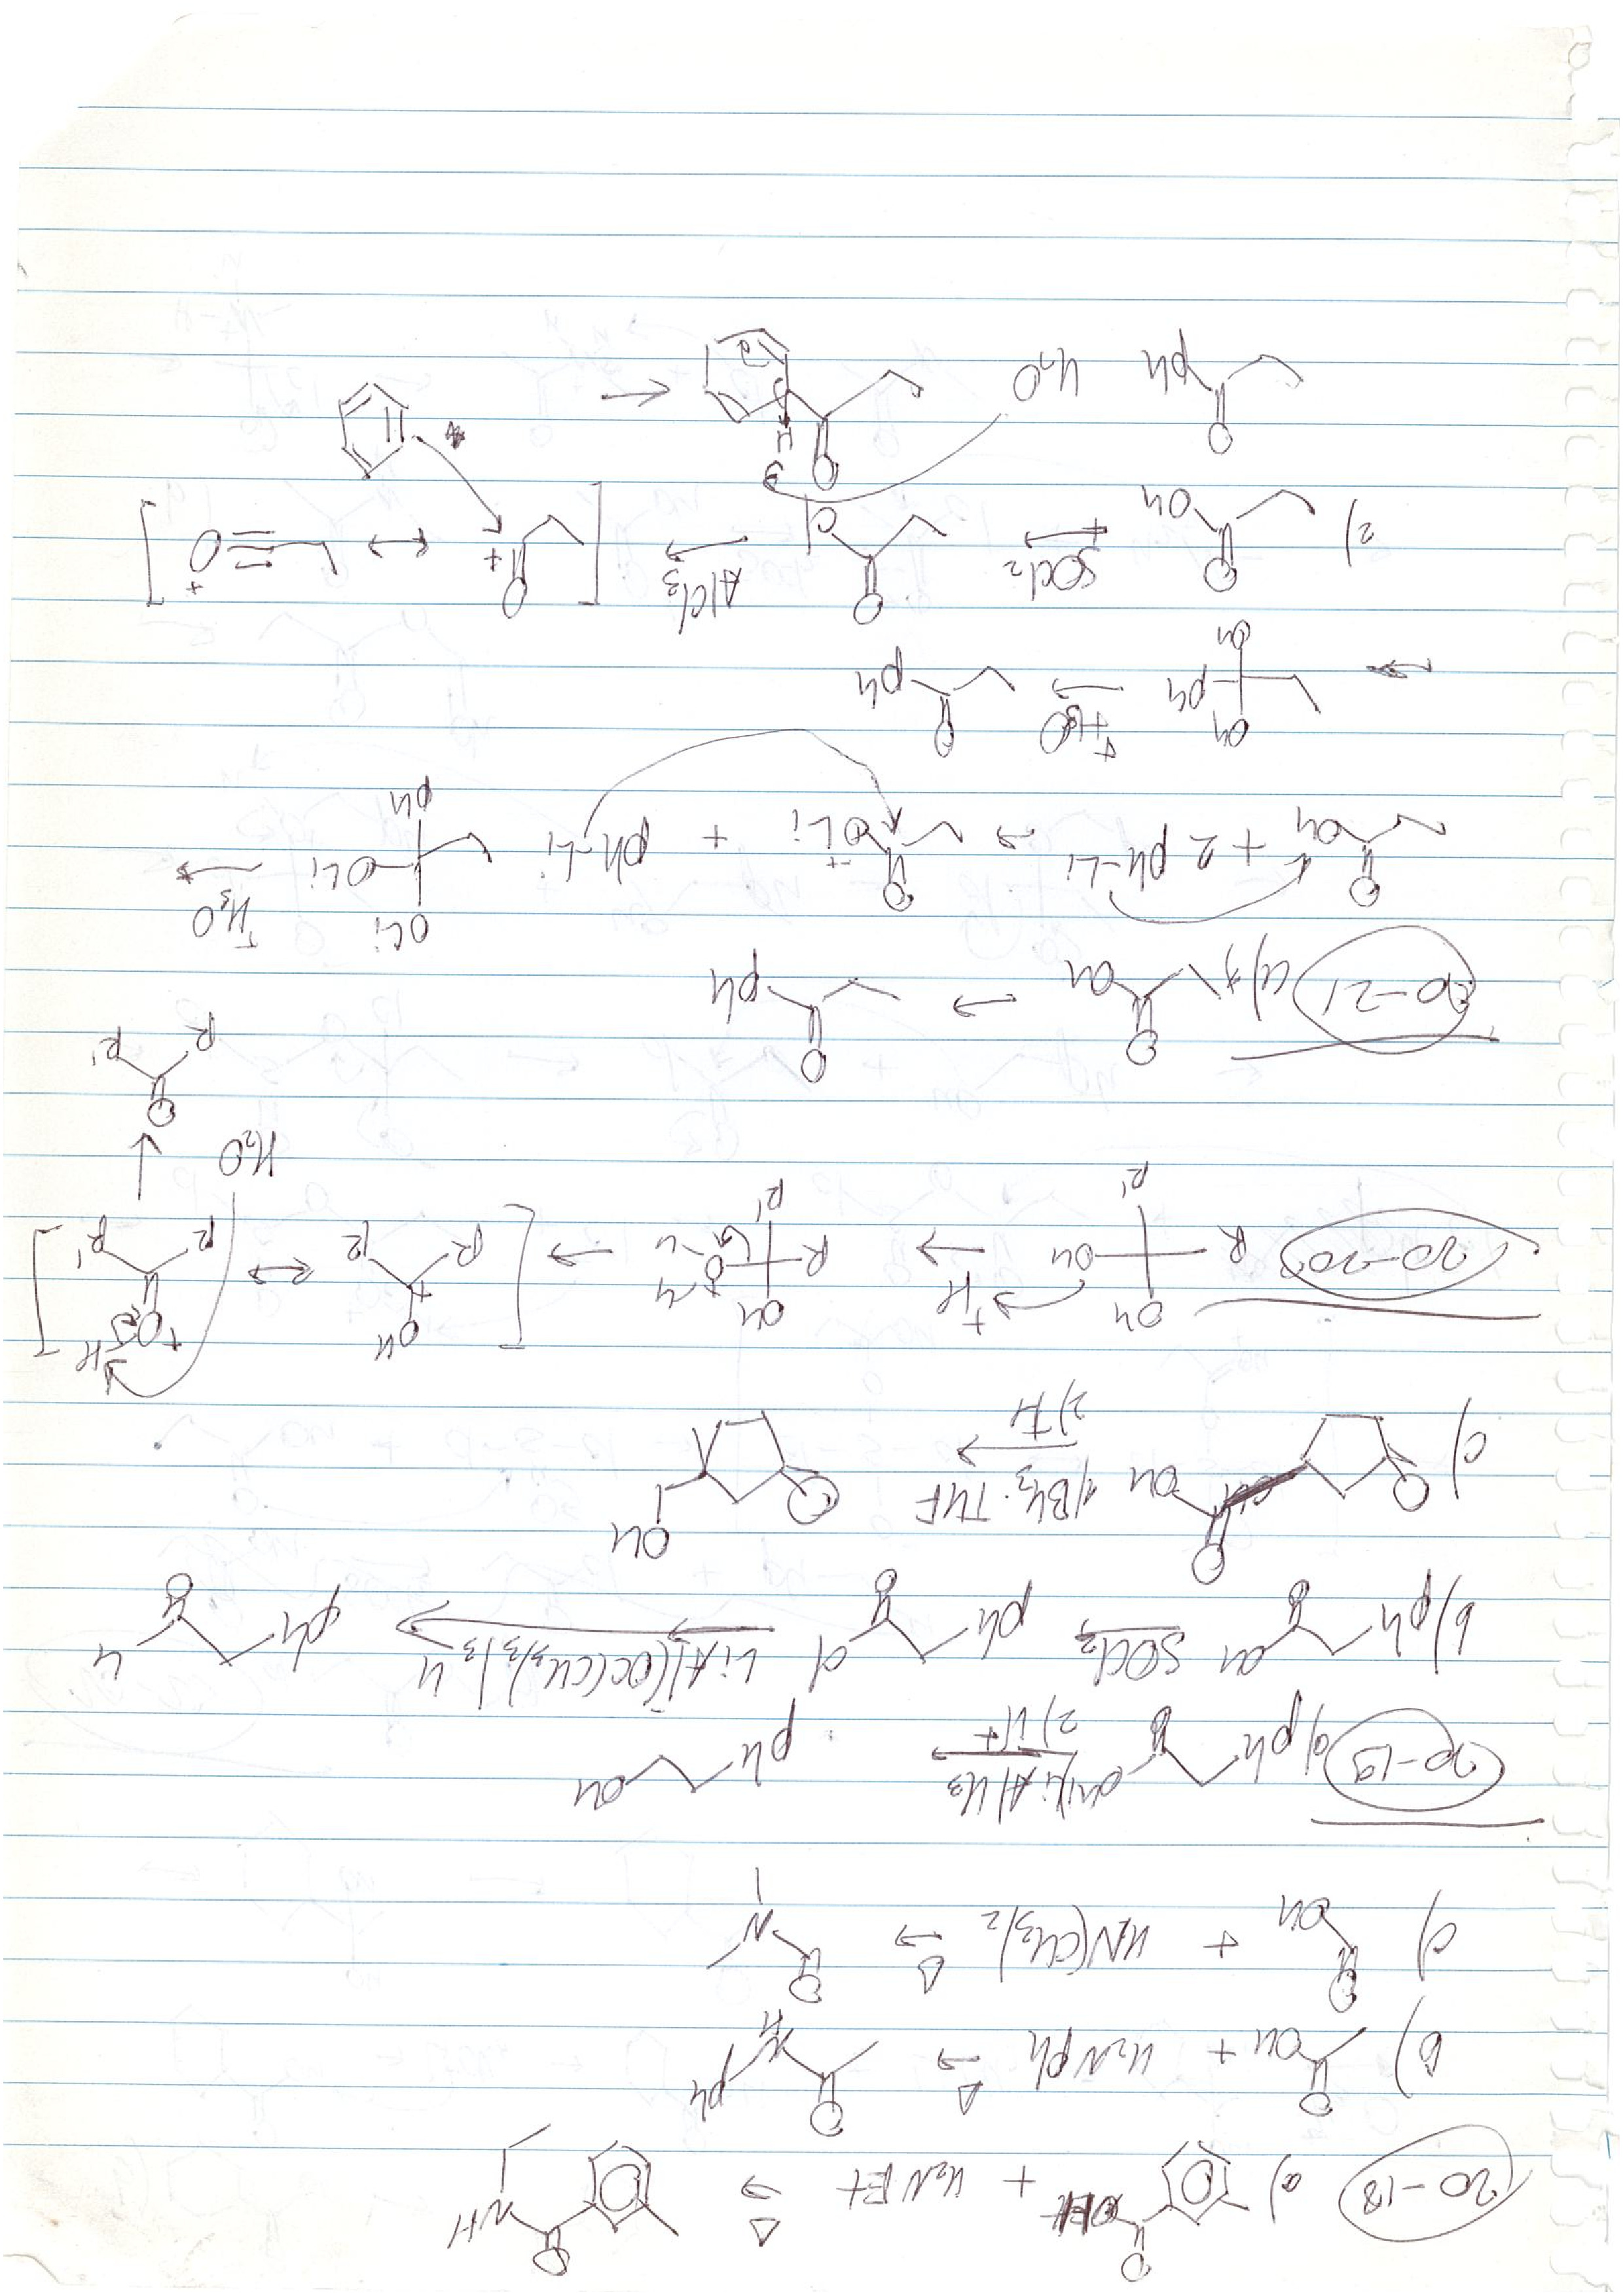 20-18 a) O OEt + H2NEt Δ → O N-H
b) O OH + H2NPh Δ → O N H Ph
c) O OH + HN(CH3)2 Δ → O N
20-19 a) Ph O OH 1) LiAlH3 2) H+ → Ph OH
b) Ph O OH SOCl2 → Ph O Cl LiAl(OC(CH3)3)3H → Ph O H
c) O O OH 1) BH3·THF 2) H+ → O OH
20-20 R OH OH R' H+ → R OH O+ H H R' → [ OH R + R ↔ +O H R R' ] H2O → O R R'
20-21 a) 1) O OH → O Ph
O OH + 2 Ph-Li → O O- +Li + Ph-Li → OLi OLi Ph H3O+ →
→ OH Ph OH H3O+ → O Ph
2) O OH SOCl2 → O Cl AlCl3 → [ O + ↔ O+ ]
→ O H H2O O Ph